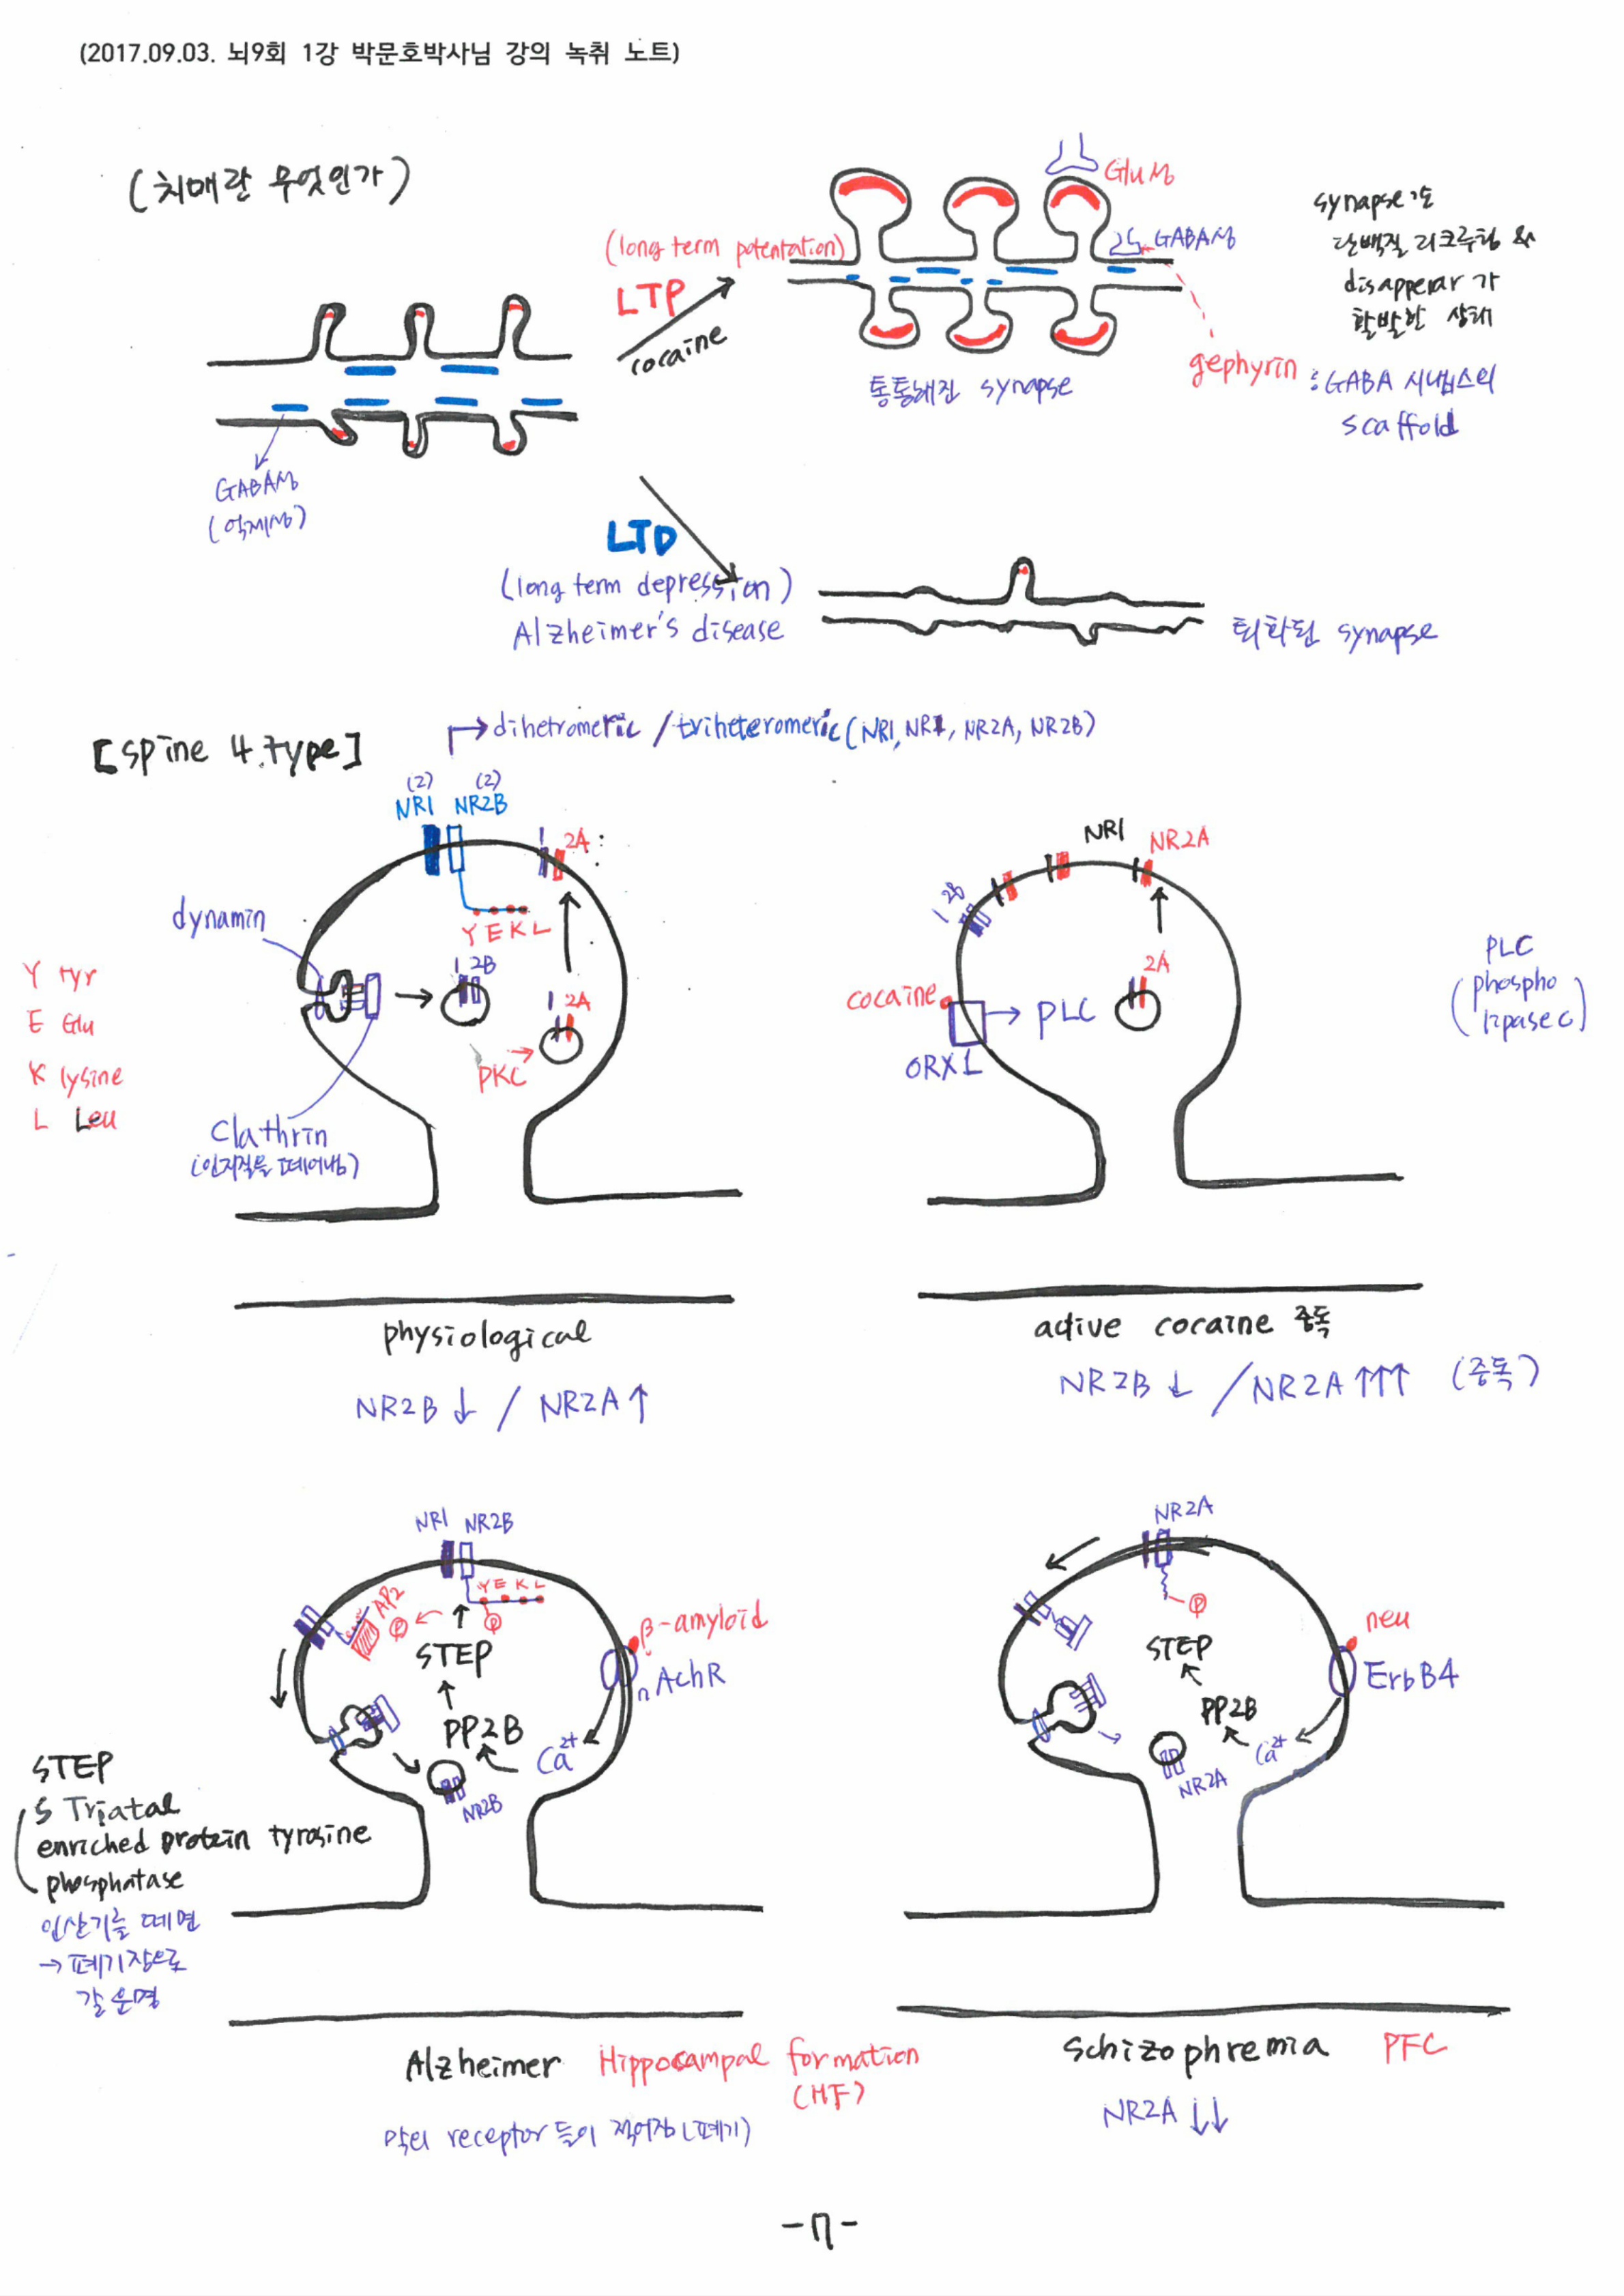 (2017.09.03. 뇌9회 1강 박문호박사님 강의 녹취 노트)
(치매란 무엇인가)
(long term potentation)
LTP
cocaine
Glu성
GABA성
gephyrin
:GABA 시냅스의
scaffold
synapse는
단백질 리크루팅 &
disapperar가
활발한 상태
통통해진 synapse
GABA성
(억제성)
LTD
(long term depression)
Alzheimer's disease
퇴화된 synapse
[spine 4.type]
dihetromeric / triheteromeric (NR1, NR1, NR2A, NR2B)
(2) (2)
NR1 NR2B
1 2A
dynamin
Y E K L
1 2B
1 2A
PKC
Clathrin
(인지질을 떼어냄)
Y tyr
E Glu
K lysine
L Leu
physiological
NR2B ↓ / NR2A ↑
NR1 NR2A
1 2B
2A
cocaine
ORX1
→ PLC
PLC
(phospho
lipase C)
active cocaine 중독
NR2B ↓ / NR2A ↑↑↑ (중독)
NR1 NR2B
Y E K L
AP2
P
P
STEP
β-amyloid
nAchR
PP2B
Ca2+
NR2B
STEP
(STriatal
enriched protein tyrosine
phosphatase
인산기를 떼면
→ 폐기장으로
갈 운명
Alzheimer Hippocampal formation
(HF)
receptor들이 적어짐(폐기)
NR2A
P
STEP
neu
ErbB4
PP2B
Ca2+
NR2A
Schizophremia PFC
NR2A ↓↓
-7-